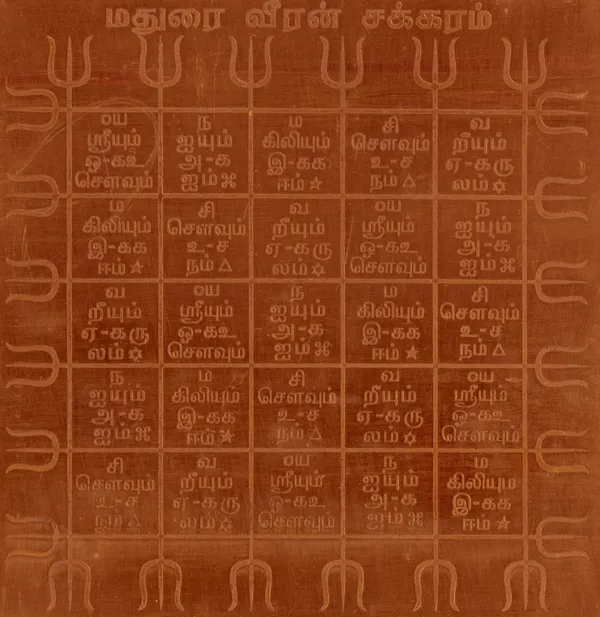 மதுரை வீரன் சக்கரம்
ய
ஸ்ரீயும்
ஒ-கஉ
சௌவும்
ந
ஐயும்
அ-க
ஐம் ⌘
ம
கிலியும்
இ-கக
ஈம் ☆
சி
சௌவும்
உ-ச
நம் △
வ
றீயும்
ஏ-கரு
லம் ✡
ம
கிலியும்
இ-கக
ஈம் ☆
சி
சௌவும்
உ-ச
நம் △
வ
றீயும்
ஏ-கரு
லம் ✡
ய
ஸ்ரீயும்
ஒ-கஉ
சௌவும்
ந
ஐயும்
அ-க
ஐம் ⌘
வ
றீயும்
ஏ-கரு
லம் ✡
ய
ஸ்ரீயும்
ஒ-கஉ
சௌவும்
ந
ஐயும்
அ-க
ஐம் ⌘
ம
கிலியும்
இ-கக
ஈம் ☆
சி
சௌவும்
உ-ச
நம் △
ந
ஐயும்
அ-க
ஐம் ⌘
ம
கிலியும்
இ-கக
ஈம் ☆
சி
சௌவும்
உ-ச
நம் △
வ
றீயும்
ஏ-கரு
லம் ✡
ய
ஸ்ரீயும்
ஒ-கஉ
சௌவும்
சி
சௌவும்
உ-ச
நம் △
வ
றீயும்
ஏ-கரு
லம் ✡
ய
ஸ்ரீயும்
ஒ-கஉ
சௌவும்
ந
ஐயும்
அ-க
ஐம் ⌘
ம
கிலியும்
இ-கக
ஈம் ☆